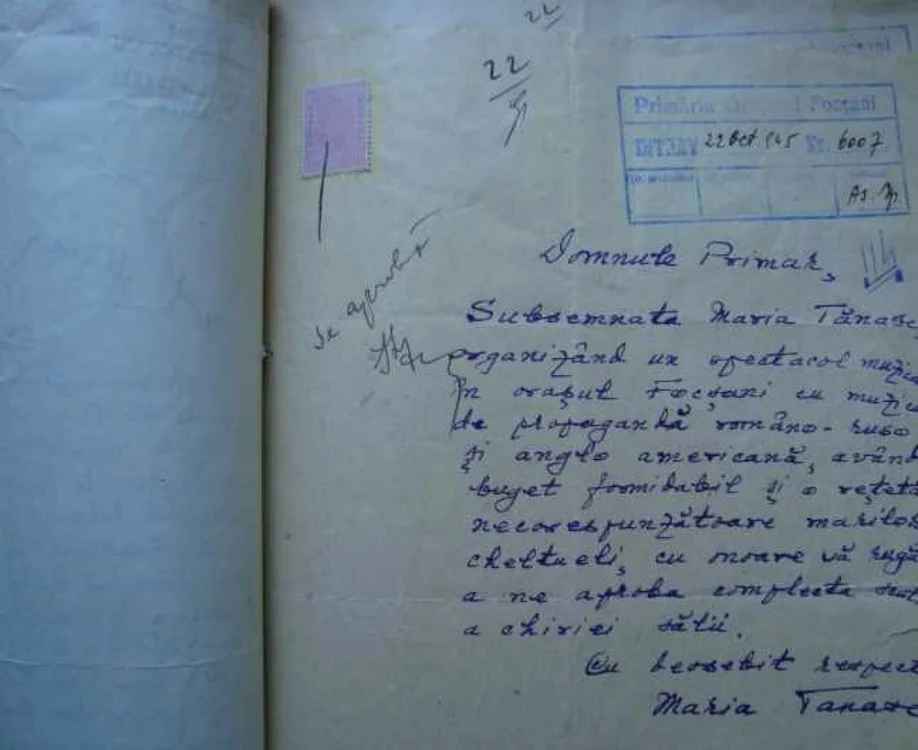 22
22
Primăria Focșani
INTRAT 22 Oct. 945 Nr. 6007
Se aprobă
Domnule Primar,
Subsemnata Maria Tănase
organizând un spectacol muzica
în orașul Focșani cu muzic
de propagandă româno-ruso
și anglo americană, având
buget formidabil și o rețetă
necorespunzătoare marilor
cheltueli, cu onoare vă rugă
a ne aproba complecta scut
a chiriei sălii.
Cu deosebit respect
Maria Tanase